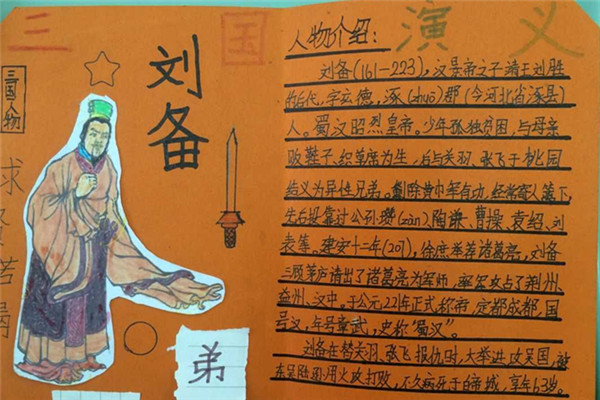 三国演义
三国人物
刘备
求贤若渴
弟
人物介绍：
刘备(161-223)，汉景帝之子靖王刘胜
的后代，字玄德，涿(zhuō)郡(今河北省涿县)
人。蜀汉昭烈皇帝。少年孤独贫困，与母亲
贩鞋子、织草席为生，后与关羽、张飞于桃园
结义为异性兄弟。剿除黄巾军有功，经常寄人篱下，
先后投靠过公孙瓒(zàn)、陶谦、曹操、袁绍、刘
表等。建安十二年(207)，徐庶举荐诸葛亮，刘备
三顾茅庐请出了诸葛亮为军师，率军攻占了荆州、
益州、汉中。于公元221年正式称帝，定都成都，国
号汉，年号章武，史称"蜀汉"。
刘备在替关羽、张飞报仇时，大举进攻吴国，被
东吴陆逊用火攻打败，不久病死于白帝城，享年63岁。